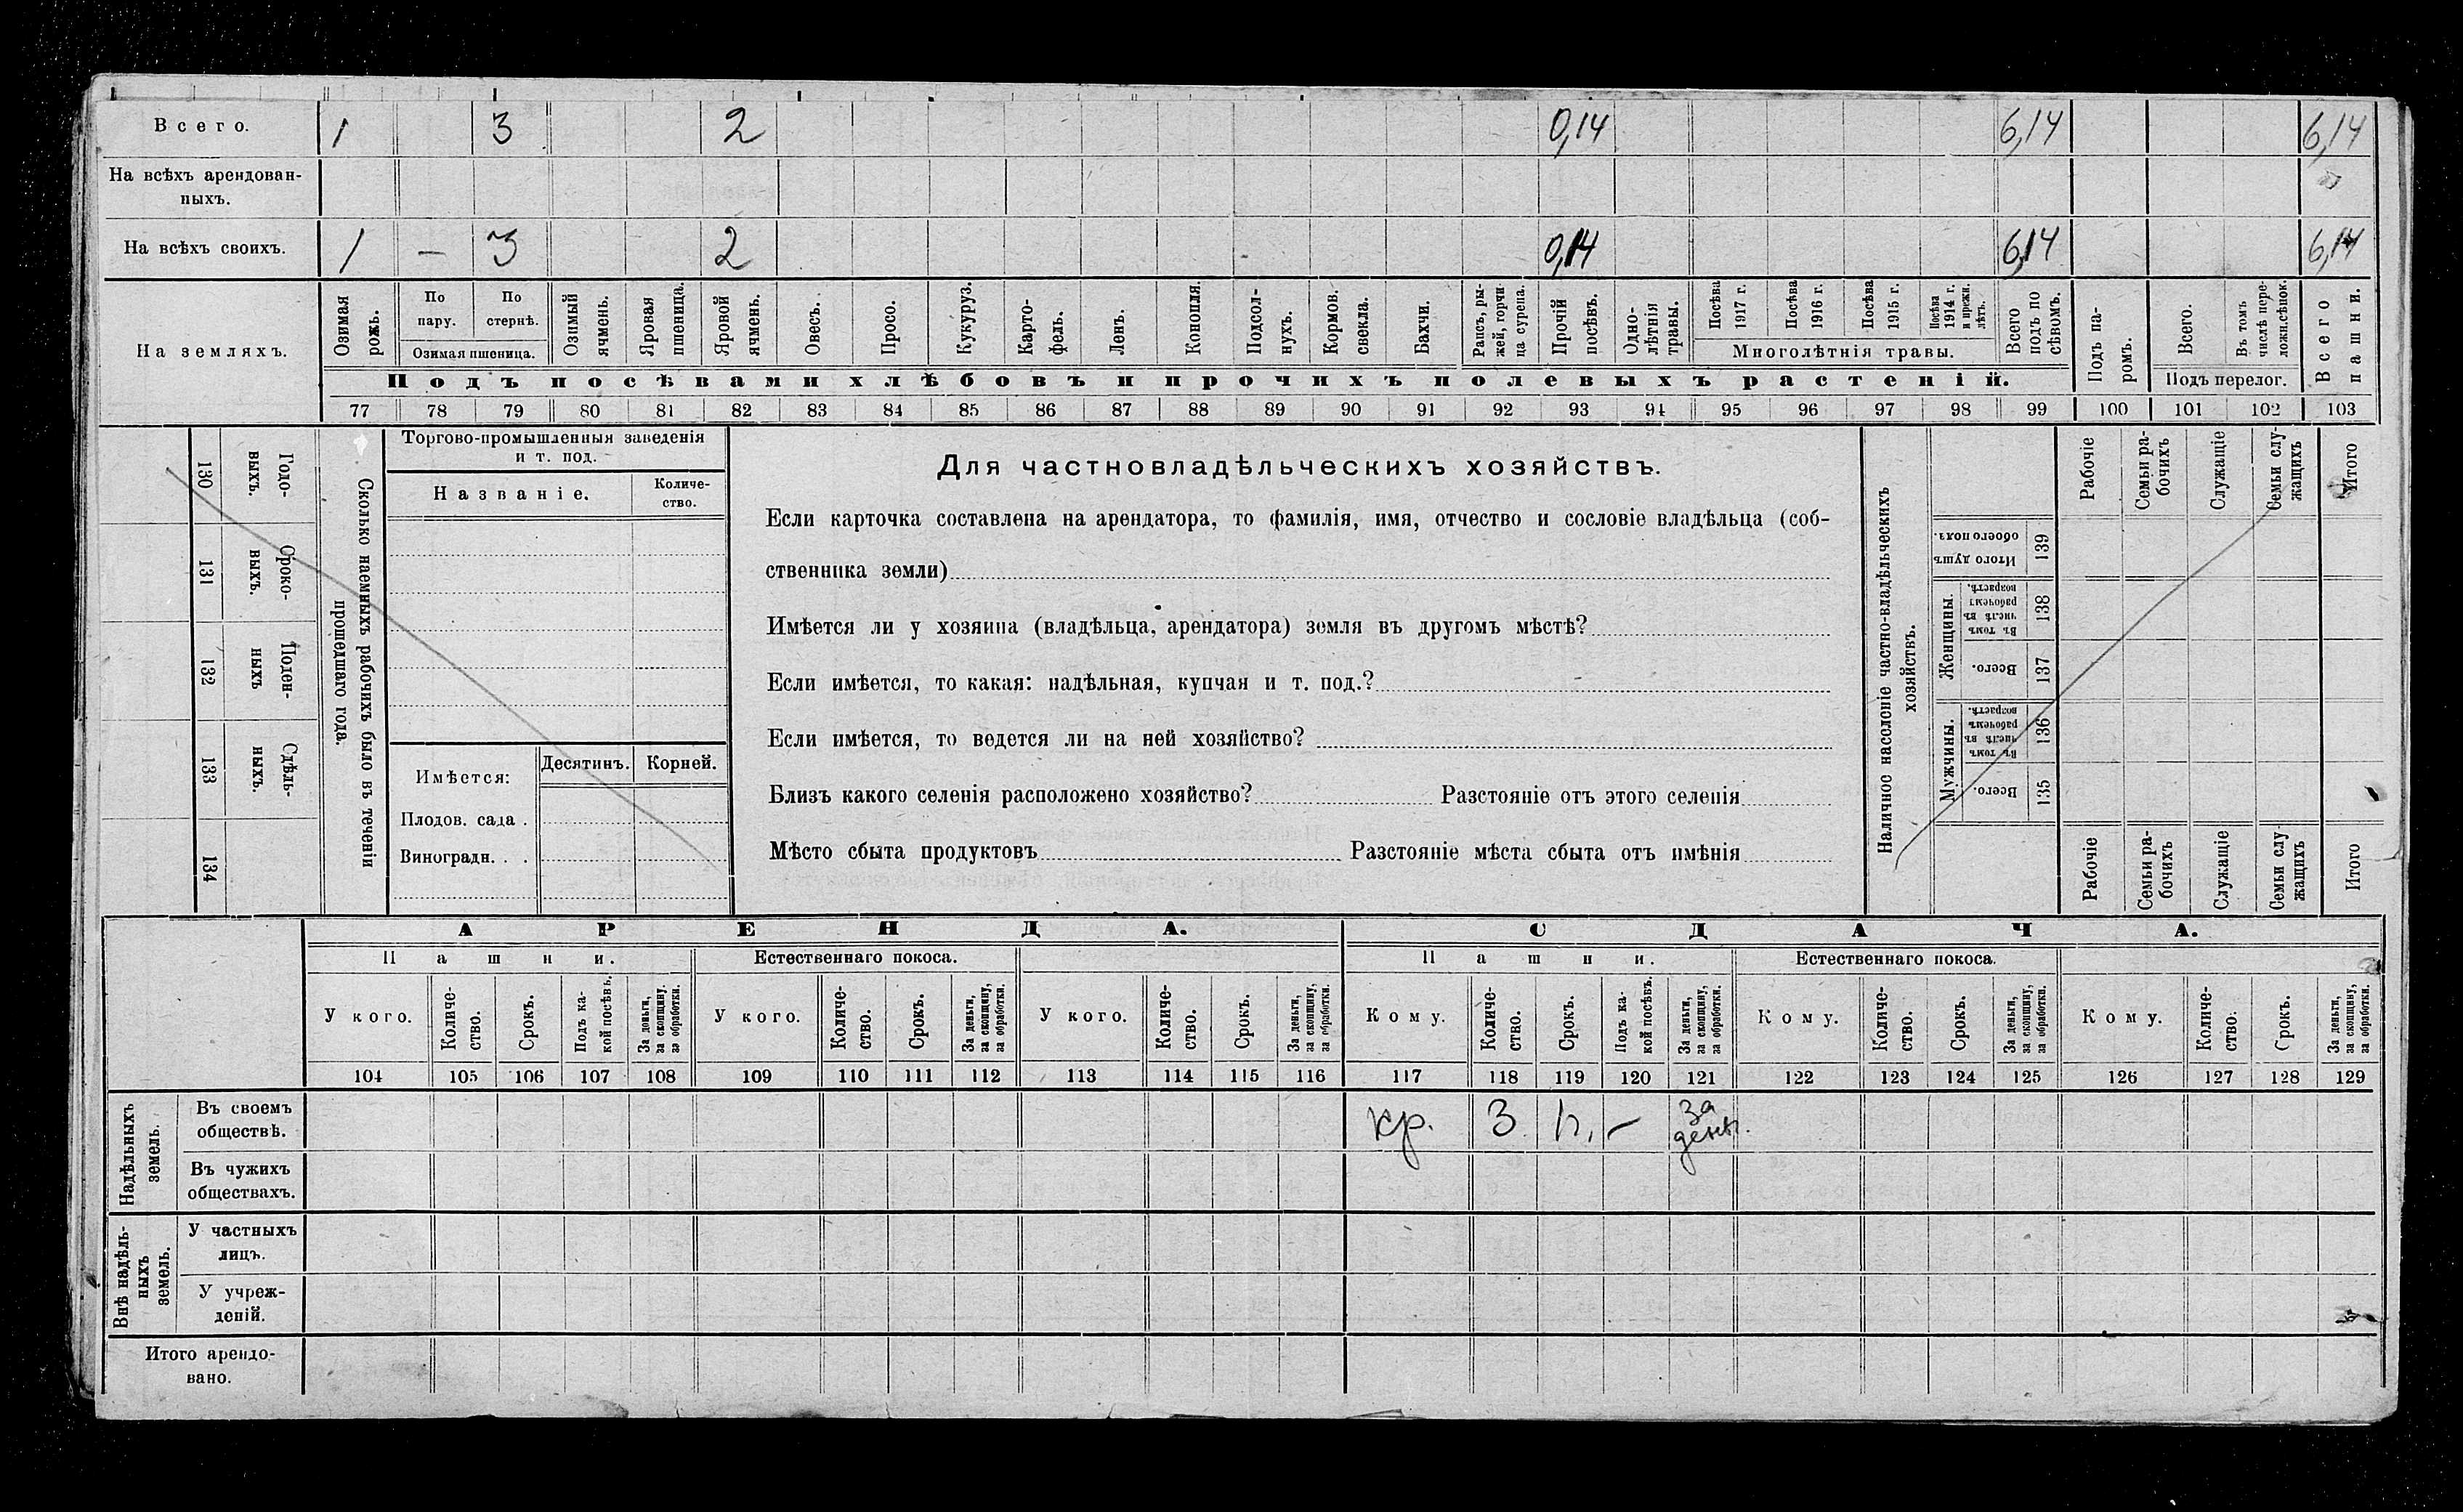 Всего. 1 3 2 0,14 6,14 6,14
На всѣхъ арендован-
ныхъ.
На всѣхъ своихъ. 1 — 3 2 0,14 6,14 6,14
На земляхъ.
Озимая рожь.
По пару.
По стернѣ.
Озимая пшеница.
Озимый ячмень.
Яровая пшеница.
Яровой ячмень.
Овесъ.
Просо.
Кукуруз.
Карто-
фель.
Ленъ.
Конопля.
Подсол-
нухъ.
Кормов.
свекла.
Бахчи.
Рапсъ, ры-
жей, горчи-
ца сурепа.
Прочій
посѣвъ.
Одно-
лѣтнія
травы.
Посѣва
1917 г.
Посѣва
1916 г.
Посѣва
1915 г.
Посѣва
1914 г.
и прежн.
лѣтъ.
Многолѣтнія травы.
Всего
подъ по
сѣвомъ.
Подъ па-
ромъ.
Всего.
Въ томъ
числѣ пере-
ложн.сѣнок.
Подъ перелог.
Всего
пашни.
Подъ посѣвами хлѣбовъ и прочихъ полевыхъ растеній.
77 78 79 80 81 82 83 84 85 86 87 88 89 90 91 92 93 94 95 96 97 98 99 100 101 102 103
130 Годо-
выхъ.
131 Сроко-
выхъ.
132 Поден-
ныхъ
133 Сдѣль-
ныхъ.
134
Сколько наемныхъ рабочихъ было въ теченіи
прошедшаго года.
Торгово-промышленныя заведенія
и т. под.
Названіе.
Количе-
ство.
Имѣется:
Десятинъ. Корней.
Плодов. сада .
Виноградн. . .
Для частновладѣльческихъ хозяйствъ.
Если карточка составлена на арендатора, то фамилія, имя, отчество и сословіе владѣльца (соб-
ственника земли)
Имѣется ли у хозяина (владѣльца, арендатора) земля въ другомъ мѣстѣ?
Если имѣется, то какая: надѣльная, купчая и т. под.?
Если имѣется, то ведется ли на ней хозяйство?
Близъ какого селенія расположено хозяйство? Разстояніе отъ этого селенія
Мѣсто сбыта продуктовъ Разстояніе мѣста сбыта отъ имѣнія
Наличное насоленіе частно-владѣльческихъ
хозяйствъ.
Рабочіе
Семьи ра-
бочихъ
Служащіе
Семьи слу-
жащихъ
Итого
Итого душъ
обоего пола.
139
Женщины.
Въ томъ
числѣ въ
рабочемъ
возрастѣ.
138
Всего.
137
Мужчины.
Въ томъ
числѣ въ
рабочемъ
возрастѣ.
136
Всего.
135
Рабочіе
Семьи ра-
бочихъ
Служащіе
Семьи слу-
жащихъ
Итого
АРЕНДА. СДАЧА.
Пашни. Естественнаго покоса. Пашни. Естественнаго покоса.
У кого.
Количе-
ство.
Срокъ.
Подъ ка-
кой посѣвъ.
За деньги,
за скопщину,
за обработки.
У кого.
Количе-
ство.
Срокъ.
За деньги,
за скопщину,
за обработки.
У кого.
Количе-
ство.
Срокъ.
За деньги,
за скопщину,
за обработки.
Кому.
Количе-
ство.
Срокъ.
Подъ ка-
кой посѣвъ.
За деньги,
за скопщину,
за обработки.
Кому.
Количе-
ство.
Срокъ.
За деньги,
за скопщину,
за обработки.
Кому.
Количе-
ство.
Срокъ.
За деньги,
за скопщину,
за обработки.
104 105 106 107 108 109 110 111 112 113 114 115 116 117 118 119 120 121 122 123 124 125 126 127 128 129
Надѣльныхъ
земель.
Въ своемъ
обществѣ.
кр. 3 —
за
день.
Въ чужихъ
обществахъ.
Внѣ надѣль-
ныхъ
земель.
У частныхъ
лицъ.
У учреж-
деній.
Итого арендо-
вано.